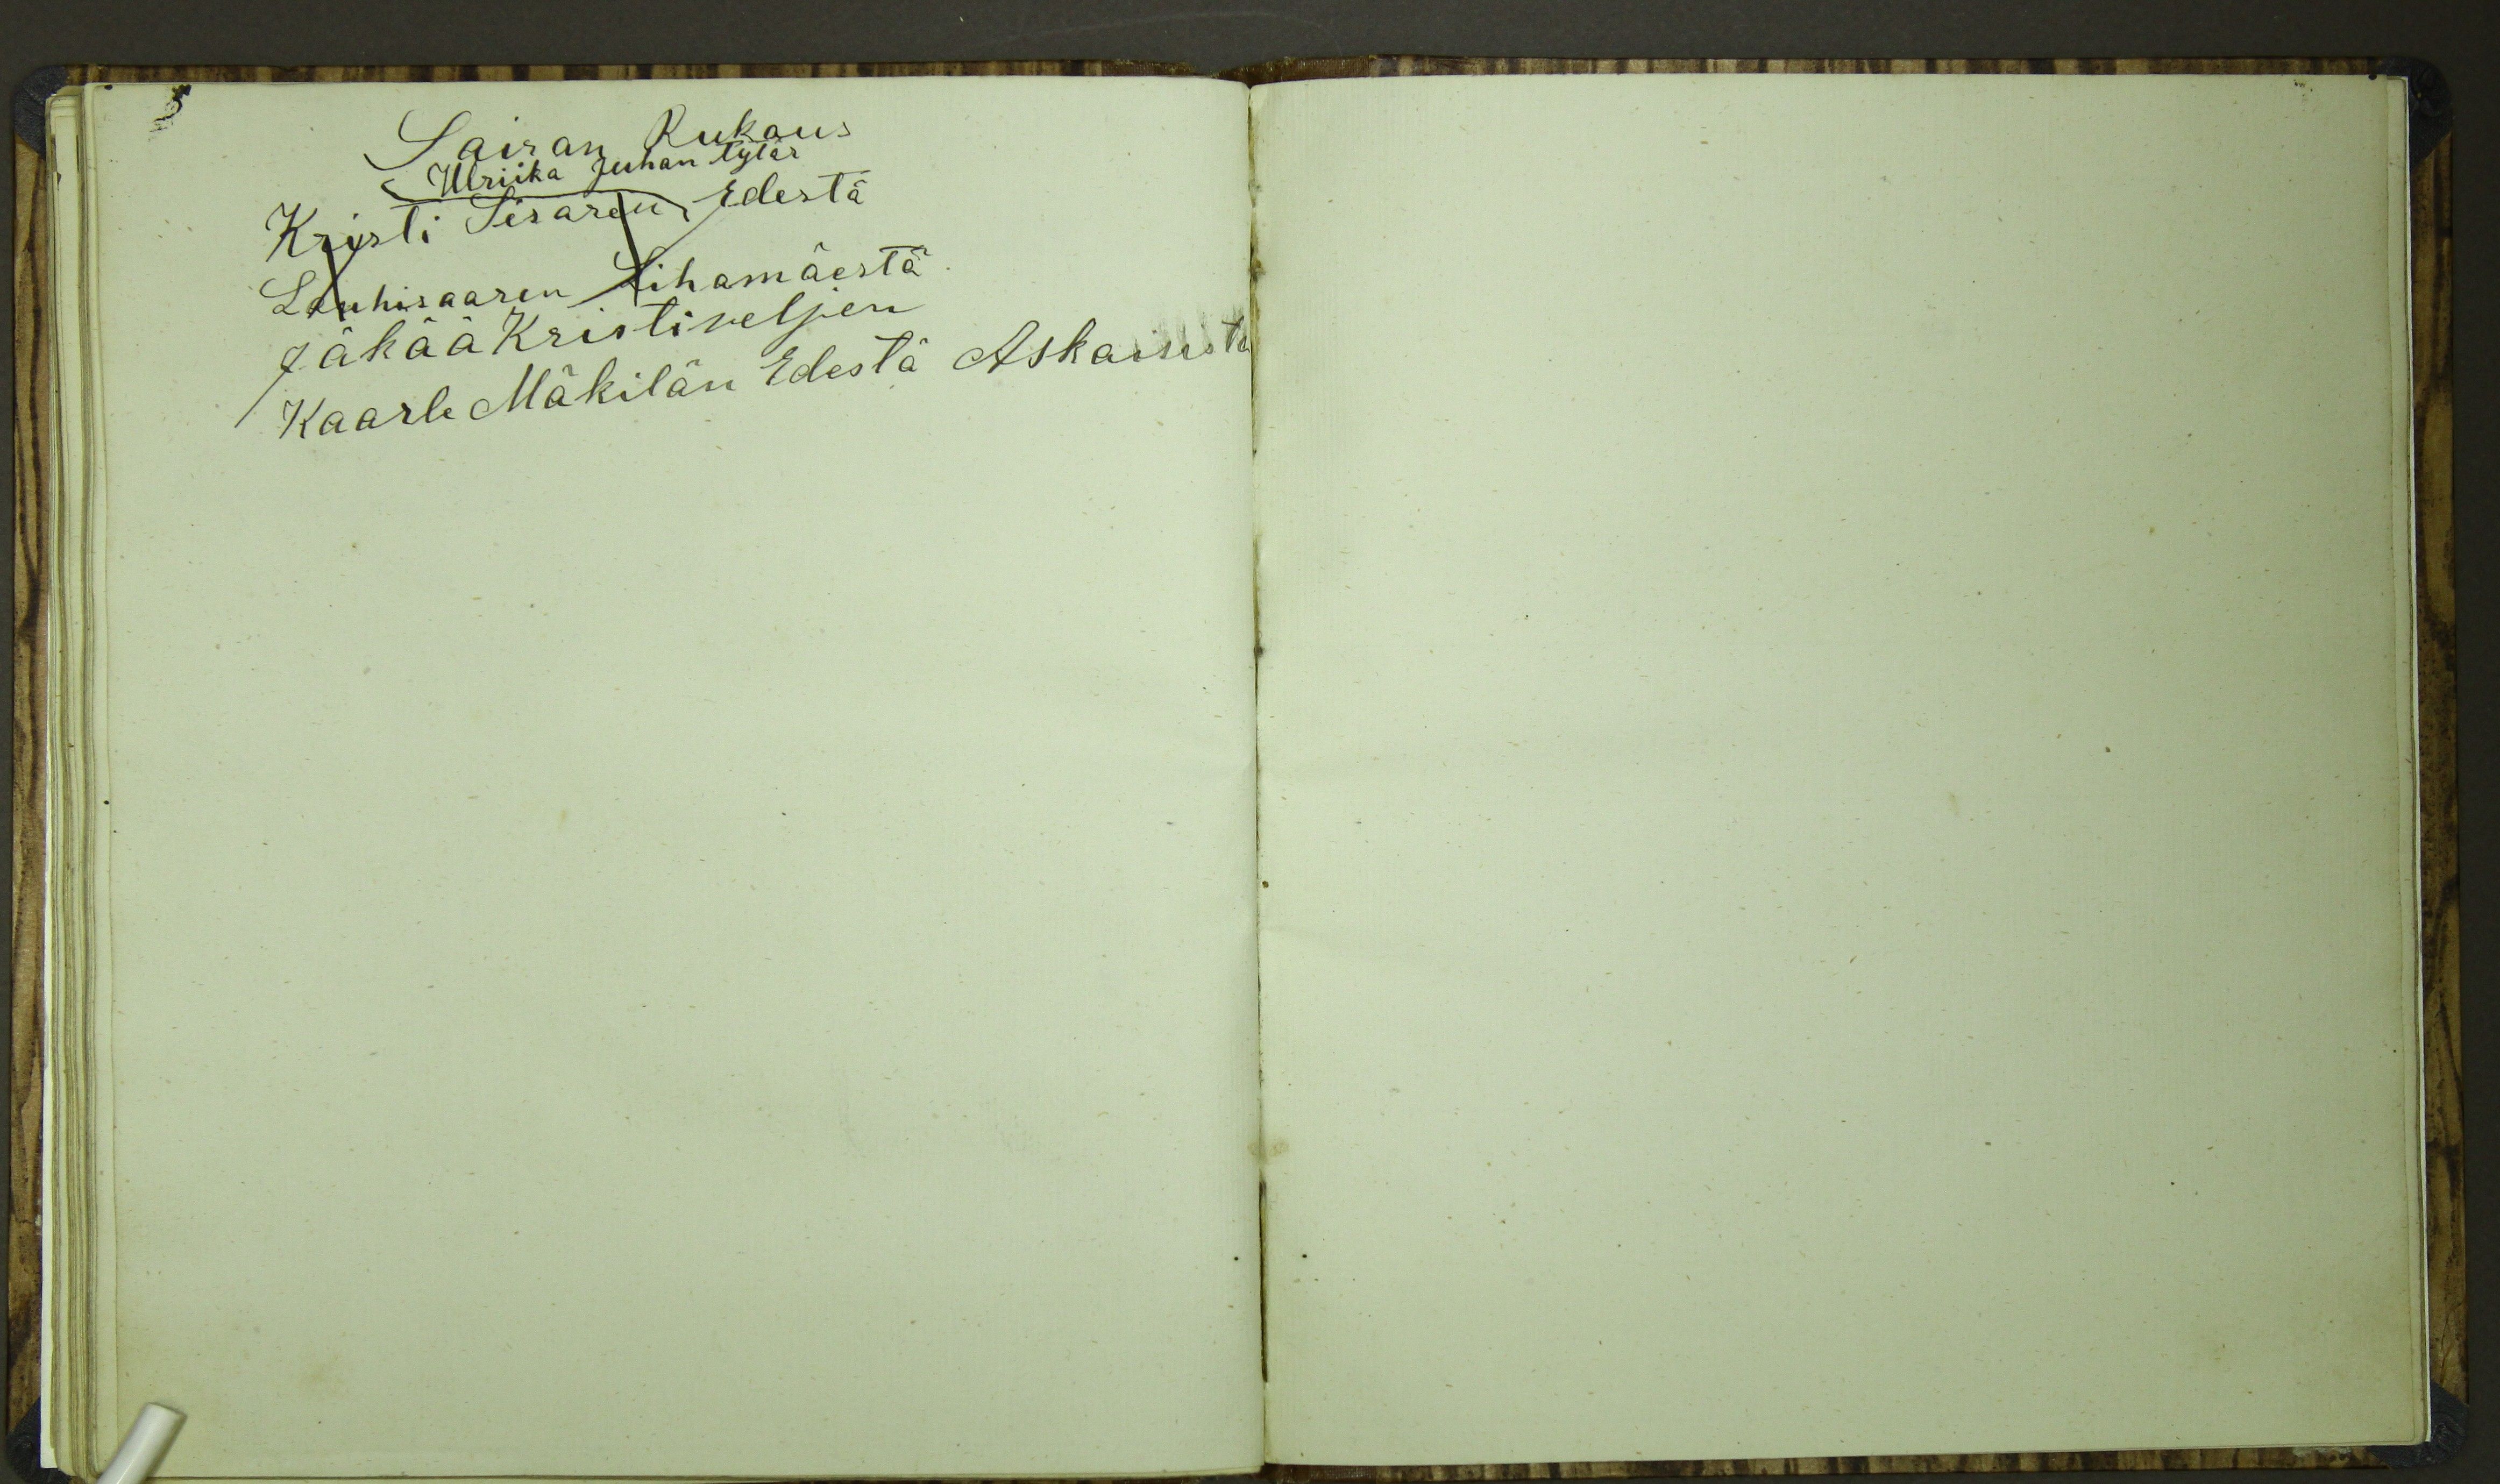 Sairan Rukous
Ulriika Juhan tytär
Kristi Sisaren Edestä
Louhisaaren Lihamäestä
Jäkää Kristiveljen
Kaarle Mäkilän Edestä Askaisista